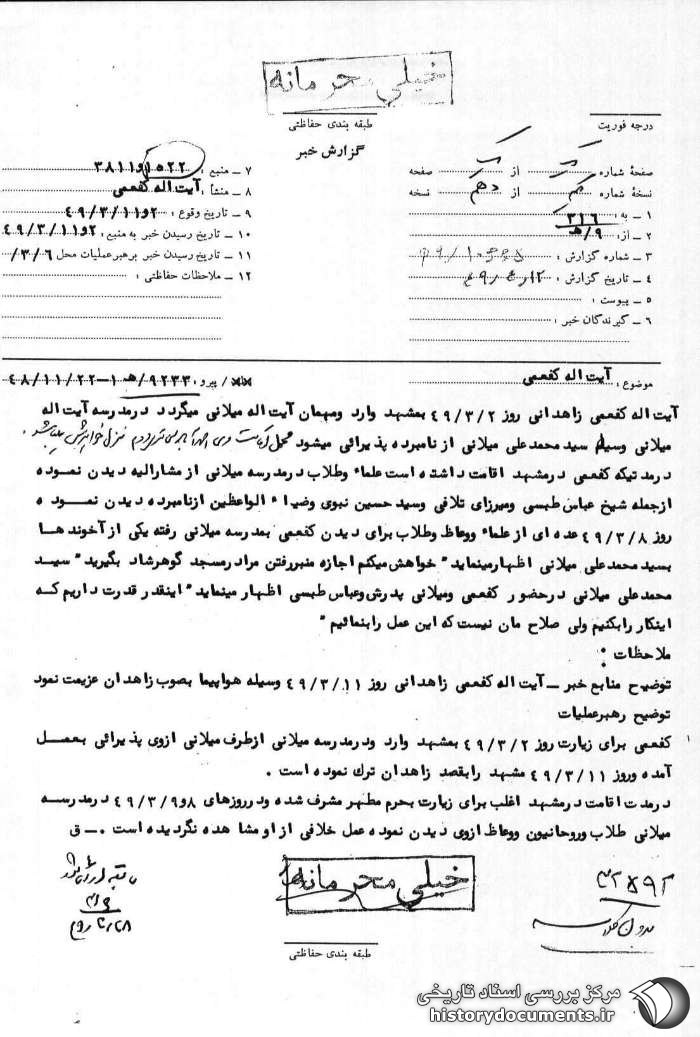 خیلی محرمانه
طبقه بندی حفاظتی
گزارش خبر
درجه فوریت
صفحهٔ شماره یک از یک صفحه
نسخهٔ شماره یکم از دهم نسخه
۱ ــ به: ۳۱۶
۲ ــ از: ۹/هـ
۳ ــ شماره گزارش:
۴ ــ تاریخ گزارش:
۵ ــ پیوست:
۶ ــ گیرندگان خبر:
۷ ــ منبع: ۱۵۲۲و۳۸۱۱
۸ ــ منشأ: آیت اله کفعمی
۹ ــ تاریخ وقوع: ۲و۴۹/۳/۱۱
۱۰ ــ تاریخ رسیدن خبر به منبع: ۲و۴۹/۳/۱۱
۱۱ ــ تاریخ رسیدن خبر برهبر عملیات محل ۳/۶/
۱۲ ــ ملاحظات حفاظتی:
موضوع: آیت اله کفعمی
/ پیرو: ۹۲۳۳/هـ ۱-۴۸/۱۱/۲۲
آیت اله کفعمی زاهدانی روز ۴۹/۳/۲ بمشهد وارد ومهمان آیت اله میلانی میگردد درمدرسه آیت اله
میلانی وسیله سید محمدعلی میلانی از نامبرده پذیرائی میشود محل
درمدتیکه کفعمی درمشهد اقامت داشته است علماء وطلاب درمدرسه میلانی از مشارالیه دیدن نموده
ازجمله شیخ عباس طبسی ومیرزای تلافی وسید حسین نبوی وضیاء الواعظین ازنامبرده دیدن نموده
روز ۴۹/۳/۸ عده ای از علماء ووعاظ وطلاب برای دیدن کفعمی بمدرسه میلانی رفته یکی از آخوند ها
بسید محمدعلی میلانی اظهارمینماید " خواهش میکنم اجازه منبررفتن مرادرمسجد گوهرشاد بگیرید " سید
محمدعلی میلانی درحضور کفعمی ومیلانی پدرش وعباس طبسی اظهار مینماید " اینقدر قدرت داریم که
اینکار رابکنیم ولی صلاح مان نیست که این عمل رابنمائیم "
ملاحظات :
توضیح منابع خبر ــ آیت اله کفعمی زاهدانی روز ۴۹/۳/۱۱ وسیله هواپیما بصوب زاهدان عزیمت نمود
توضیح رهبرعملیات
کفعمی برای زیارت روز ۴۹/۳/۲ بمشهد وارد ودرمدرسه میلانی ازطرف میلانی ازوی پذیرائی بعمل
آمده وروز ۴۹/۳/۱۱ مشهد رابقصد زاهدان ترك نموده است .
درمدت اقامت درمشهد اغلب برای زیارت بحرم مطهر مشرف شده ودرروزهای ۸و۴۹/۳/۹ درمدرسه
میلانی طلاب وروحانیون ووعاظ ازوی دیدن نموده عمل خلافی از او مشاهده نگردیده است . ــ ق
خیلی محرمانه
طبقه بندی حفاظتی
مرکز بررسی اسناد تاریخی
historydocuments.ir